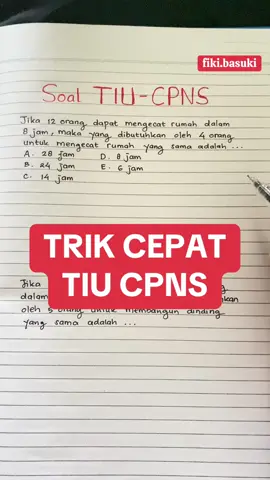 fiki.basuki
Soal TIU-CPNS
Jika 12 orang dapat mengecat rumah dalam
8 jam, maka yang dibutuhkan oleh 4 orang
untuk mengecat rumah yang sama adalah ...
A. 28 jam D. 8 jam
B. 24 jam E. 6 jam
C. 14 jam
TRIK CEPAT
TIU CPNS
Jika
dalam
oleh 5 orang untuk membangun dinding
yang sama adalah ...